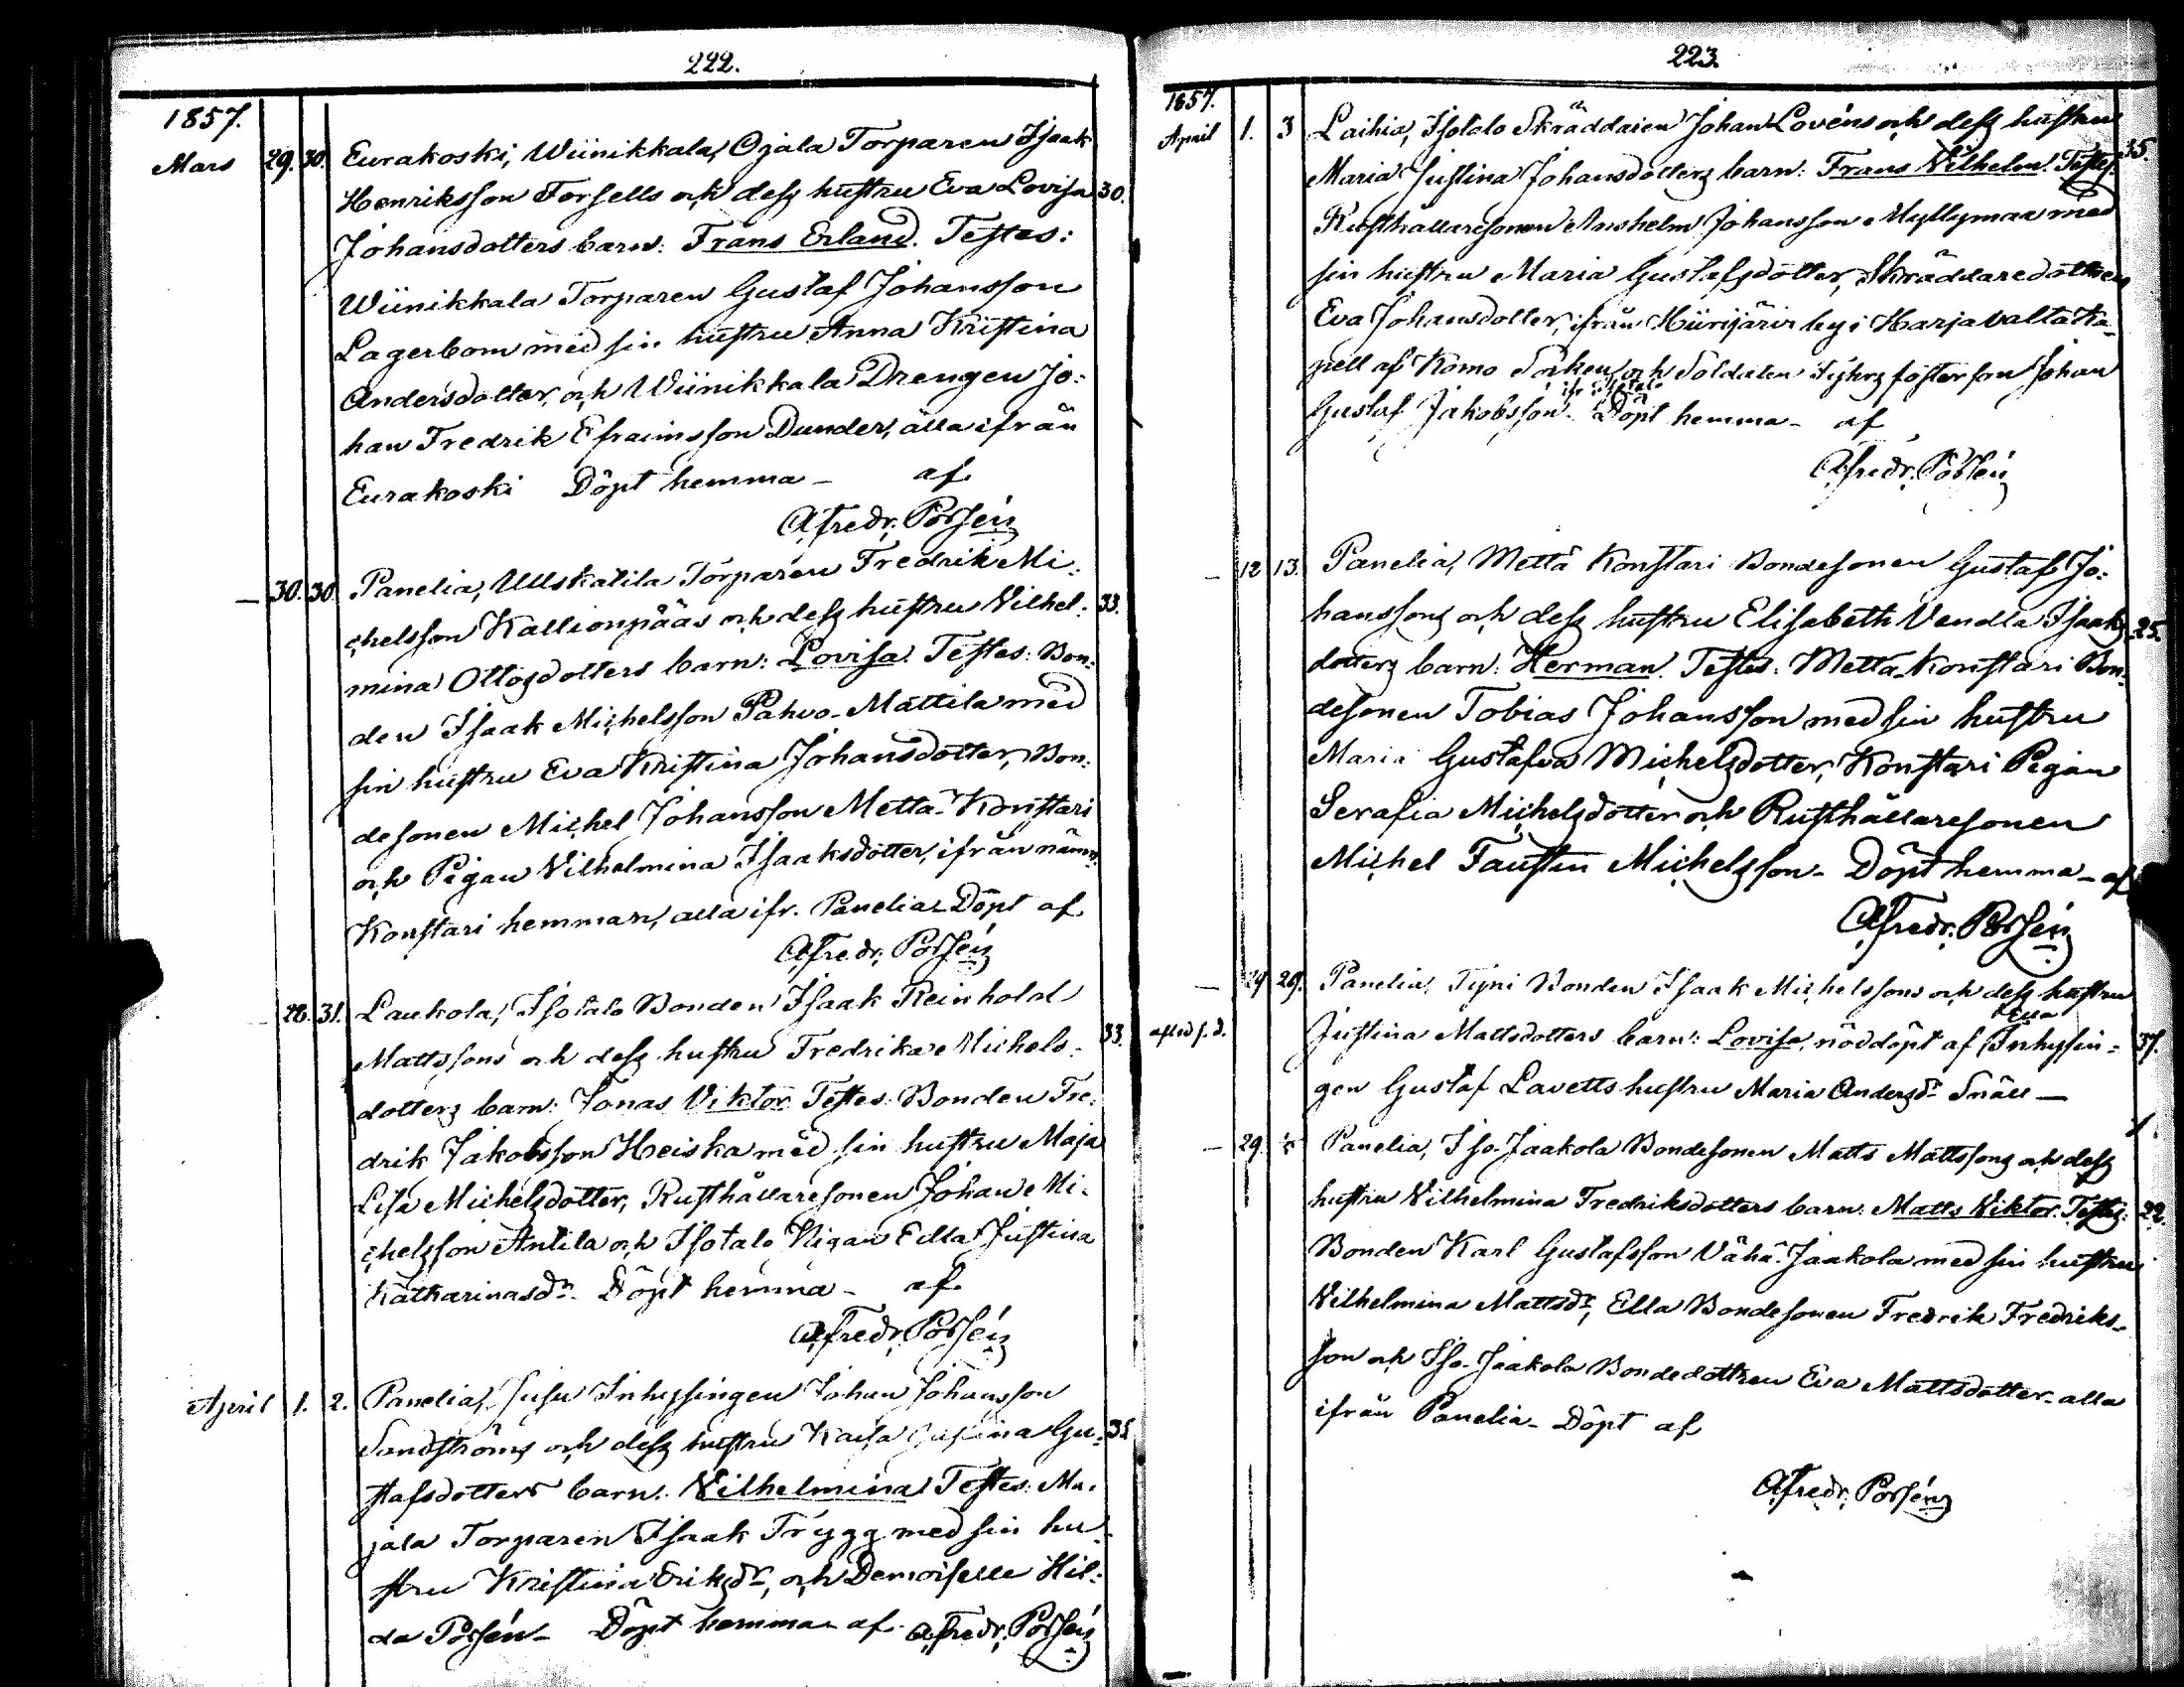 222.
1857.
Mars 29. 30. Eurakoski, Wiinikkala, Ojala Torparen Isaak
Henriksson Forsells och dess hustru Eva Lovisa 30.
Johansdotters barn: Frans Erland. Testes:
Wiinikkala Torparen Gustaf Johansson
Lagerbom med sin hustru Anna Kristina
Andersdotter, och Wiinikkala Drengen Jo:
han Fredrik Efraimsson Dunder, alla ifrån
Eurakoski Döpt hemma – af
A. Fredr. Porsén
– 30. 30. Panelia, Ullskatila Torparen Fredrik Mi:
chelsson Kallionpääs och dess hustru Vilhel: 33.
mina Ottosdotters barn: Lovisa. Testes: Bon:
den Isaak Michelsson Pahvo-Mattila med
sin hustru Eva Kristina Johansdotter, Bon:
desonen Michel Johansson Metta-Konstari
och Pigan Vilhelmina Isaaksdotter, ifrån nämn:
Konstari hemman, alla ifr. Panelia Döpt af
A. Fredr. Porsén
– 28. 31. Laukola, Isotalo Bonden Isaak Reinhold
Mattssons och dess hustru Fredrika Michels: 33.
dotters barn: Jonas Viktor Testes: Bonden Fre:
drik Jakobsson Heiska med sin hustru Maja
Lisa Michelsdotter, Rusthållaresonen Johan Mi:
chelsson Antila och Isotalo Pigan Edla Justina
Katharinasdr. Döpt hemma – af
A. Fredr. Porsén
April 1. 2. Panelia, Inhysingen Johan Johansson
Sandströms och dess hustru Kaisa Justina Gu: 35
stafsdotters barn: Vilhelmina Testes: Mu:
jala Torparen Isaak Trygg med sin hu:
stru Kristina Eriksdr, och Demoiselle Hil:
da Porsén – Döpt hemma af A. Fredr. Porsén
223.
1857.
April 1. 3 Laihia, Isotalo Skräddaren Johan Lovéns och dess hustru
Maria Justina Johansdotters barn: Frans Vilhelm. Testes: 35.
Rusthållaresonen Anshelm Johansson Myllymaa med
sin hustru Maria Gustafsdotter, Skräddaredottren
Eva Johansdotter, ifrån Hiirijärvi by i Harjavalta Ka:
pell af Kumo Socken, och Soldaten fosterson Johan
Gustaf Jakobsson. Döpt hemma – af
A. Fredr. Porsén
– 12 13. Panelia, Metta Konstari Bondesonen Gustaf Jo:
hanssons och dess hustru Elisabeth Vendla Isaaks 25.
dotters barn: Herman. Testes: Metta-Konstari Bon:
desonen Tobias Johansson med sin hustru
Maria Gustafva Michelsdotter, Konstari Pigan
Serafia Michelsdotter och Rusthållaresonen
Michel Faustin Michelsson – Döpt hemma – af
A. Fredr. Porsén
– 29 29. Panelia, Tyni Bonden Isaak Michelssons och dess hustru
afled s. d. Justina Mattsdotters barn: Lovisa, nöddöpt af Ella Inhysin: 37.
gen Gustaf Lavetts hustru Maria Andersdr Snäll –
– 29. Panelia, Iso-Jaakola Bondesonen Matts Mattssons och dess
hustru Vilhelmina Fredriksdotters barn: Matts Viktor. Testes: 22.
Bonden Karl Gustafsson Vähä-Jaakola med sin hustru
Vilhelmina Mattsdr, Ella Bondesonen Fredrik Fredriks-
son och Iso-Jaakola Bondedottren Eva Mattsdotter – alla
ifrån Panelia – Döpt af
A. Fredr. Porsén